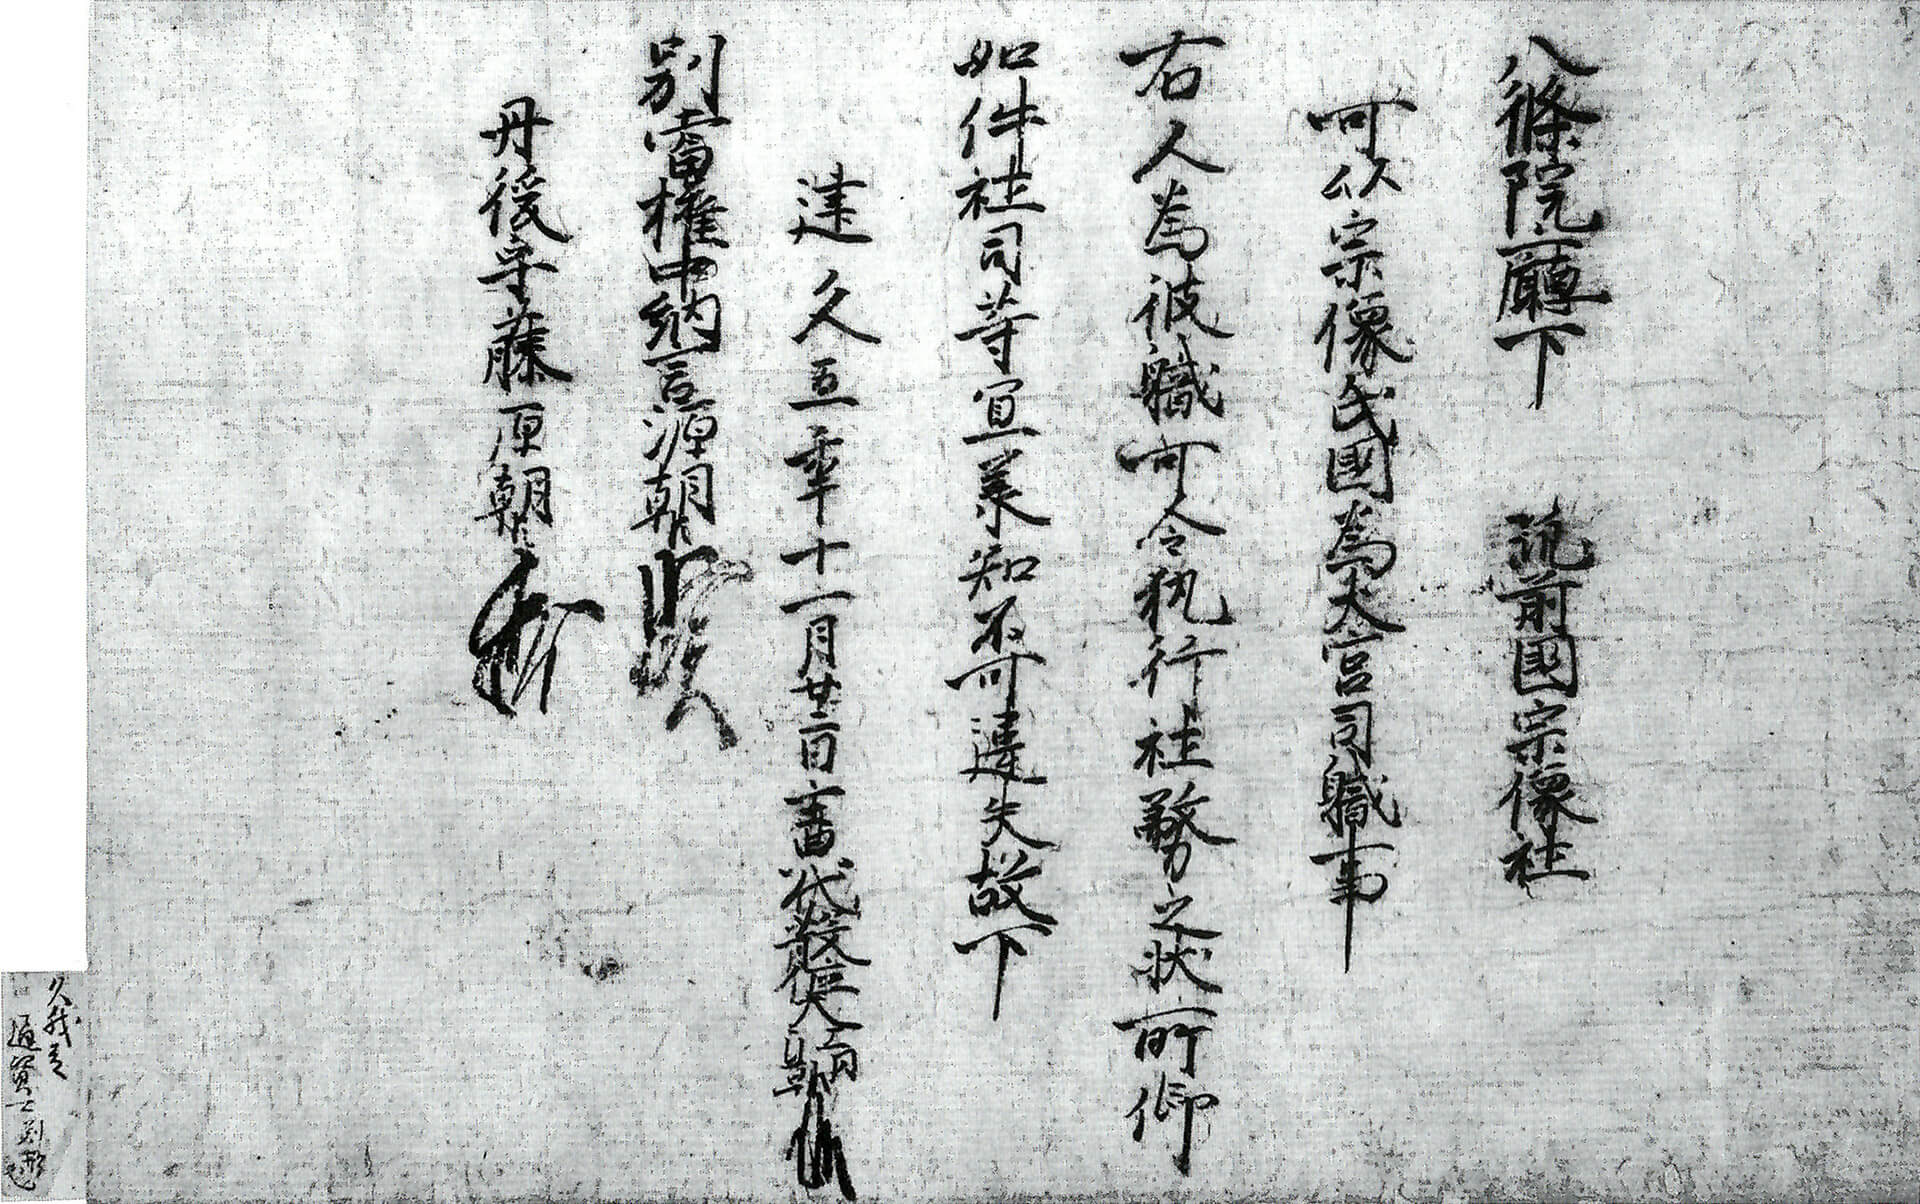 八條院廳下　筑前國宗像社
可以宗像氏國爲大宮司職事
右人爲彼職可令執行社務之状所仰
如件社司等宜承知不可違失故下
建久五年十一月廿二日主典代散位大江朝臣
別當權中納言源朝臣
丹後守藤原朝臣
久我
通賢